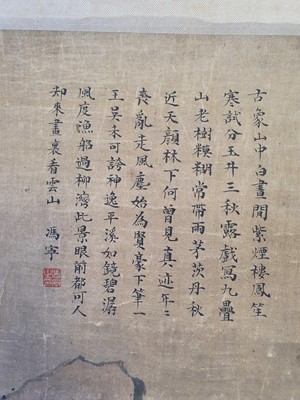 古象山中白書開紫煙樓鳳笙
寒試分玉井三秋露戲寫九疊
山老樹糢糊常帶雨茅茨丹秋
近天顏林下何曾見真迹年〻
喪亂走風塵始為賢豪下筆一
王吳本可誇神逸平溪如鏡碧潺
風度漁舠過柳灣此景眼前都可人
知來畫裏看雲山 馮寧